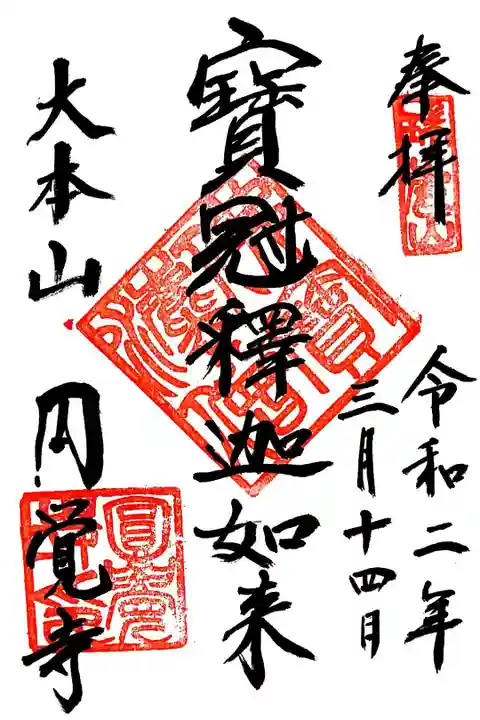 奉拝
令和二年
三月十四日
寶冠釋迦如来
大本山 円覚寺